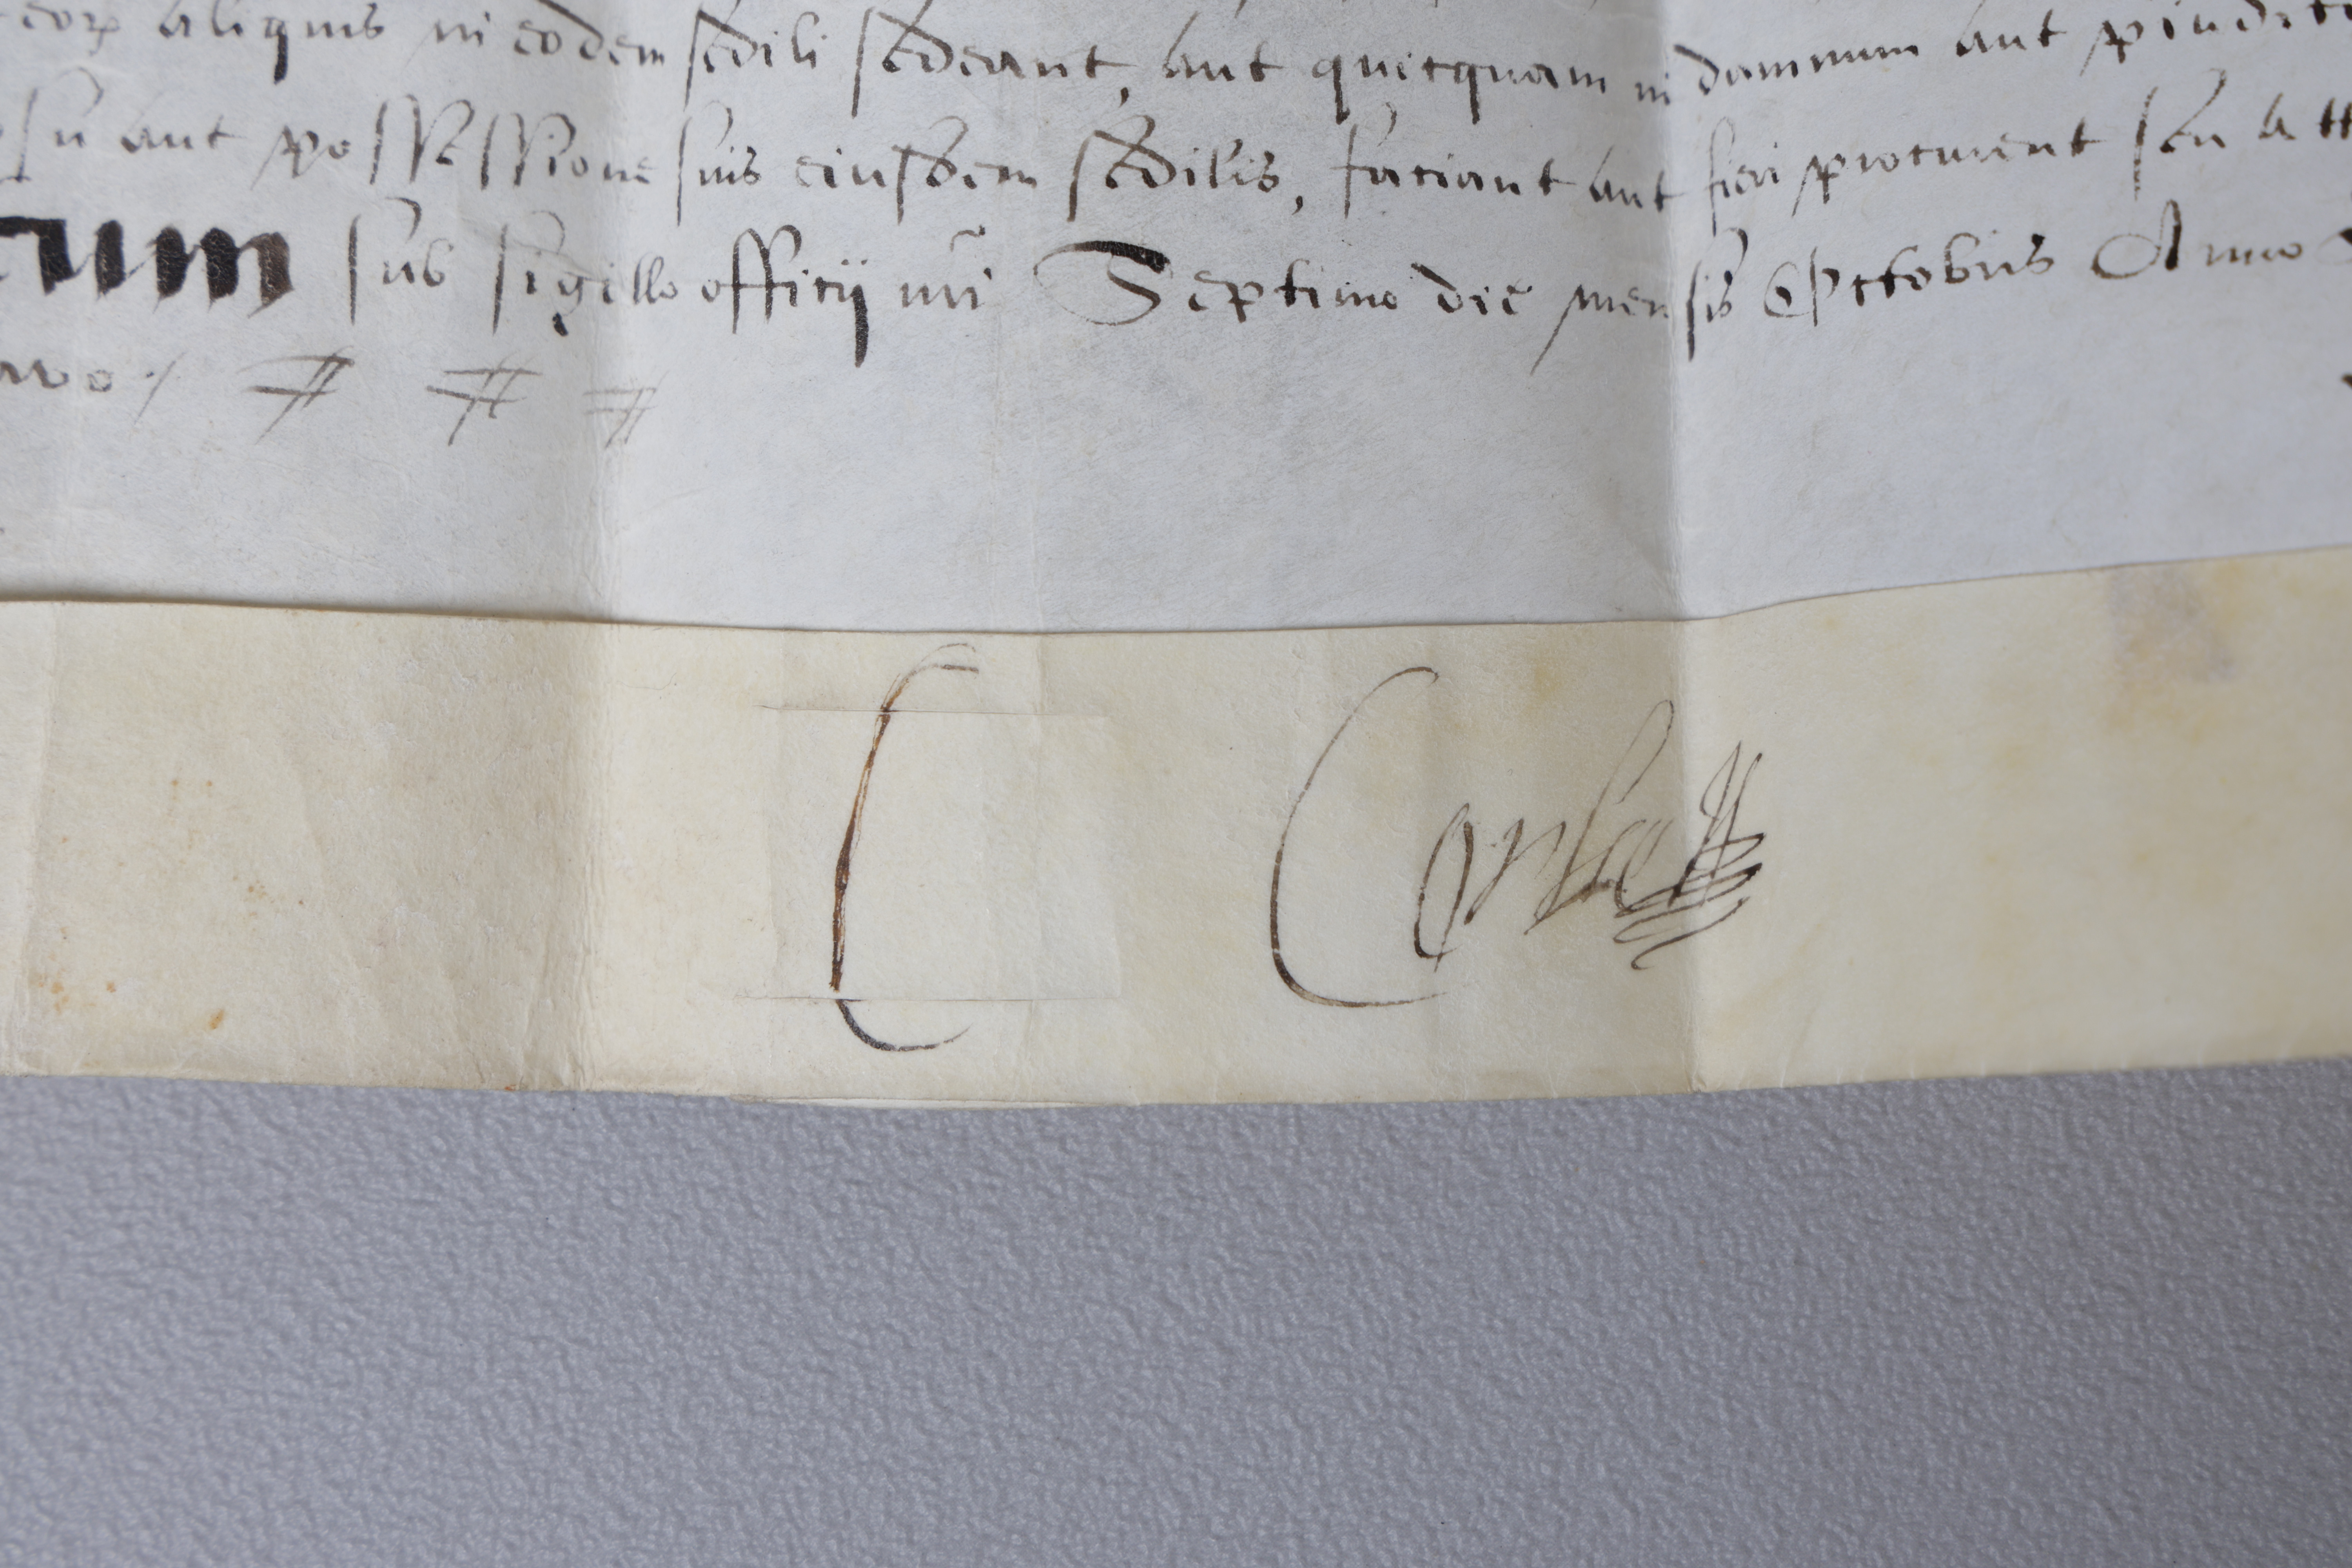 eor aliquis in eodem sedili sedeant, aut quicquam in damnum aut
su aut possessione suis eiusdem sedilis, faciant aut fieri procurent seu
tum sub sigillo officij nri Septimo die mensis Octobris Anno
avo